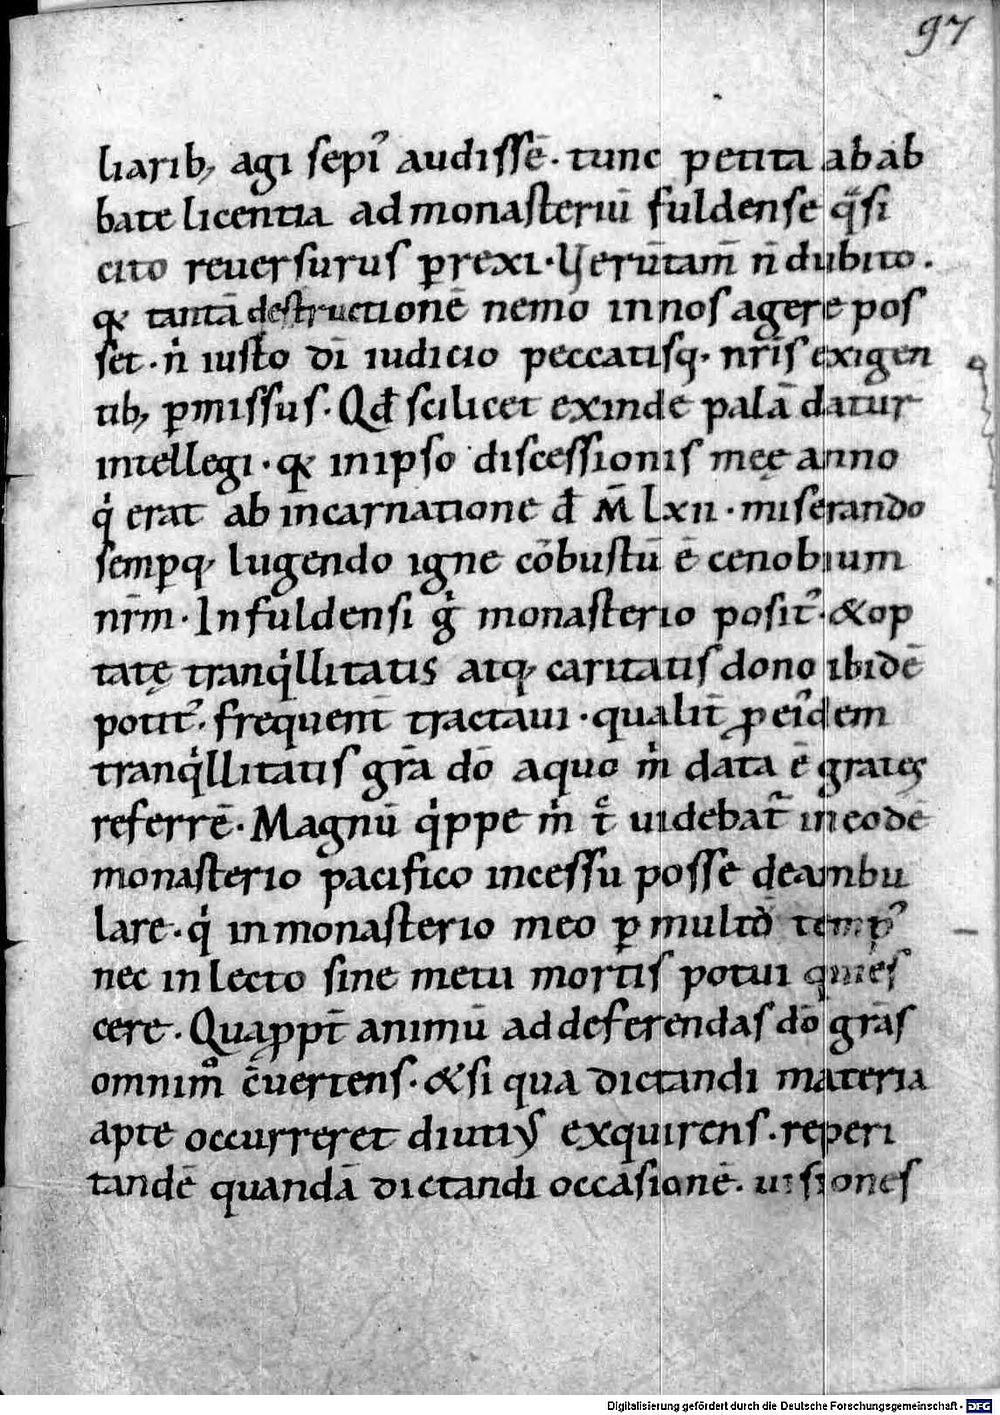 97
liarib; agi sepi᾽ audissē. tunc petita ab ab
bate licentia ad monasteriū fuldense q̄si
cito reuersurus ꝓrexi. Verūtam̄ n̄ dubito.
qꝛ tantā destructionē nemo in nos agere pos
set. n̄ iusto dī iudicio peccatisq; nr̄is exigen
tib; ꝑmissus. Qđ scilicet exinde palā datur
intellegi. qꝛ in ipso discessionis meę anno
qͥ erat ab incarnatione đ M̄ lxii. miserando
semꝑq; lugendo igne cōbustū ē cenobium
nr̄m. In fuldensi gͥ monasterio posit᾽. & op
tatę tranqͥllitatis atq; caritatis dono ibidē
potit᾽. frequent̄ tractaui. qualit̄ ꝓ eiᷣdem
tranqͥllitatis gr̄a dō a quo mͥ data ē grates
referrē. Magnū qͥppe mͥ t̄ uidebat᷑ in eodē
monasterio pacifico incessu posse deambu
lare. qͥ in monasterio meo ꝑ multoꝝ temꝑ᾽
nec in lecto sine metu mortis potui quies
cere. Quaꝓpt̄ animū ad deferendas dō gr̄as
omnimͦ c̄uertens. & si qua dictandi materia
apte occurreret diutiꝰ exquirens. reperi
tandē quandā dictandi occasionē. uisiones
Digitalisierung gefördert durch die Deutsche Forschungsgemeinschaft - DFG